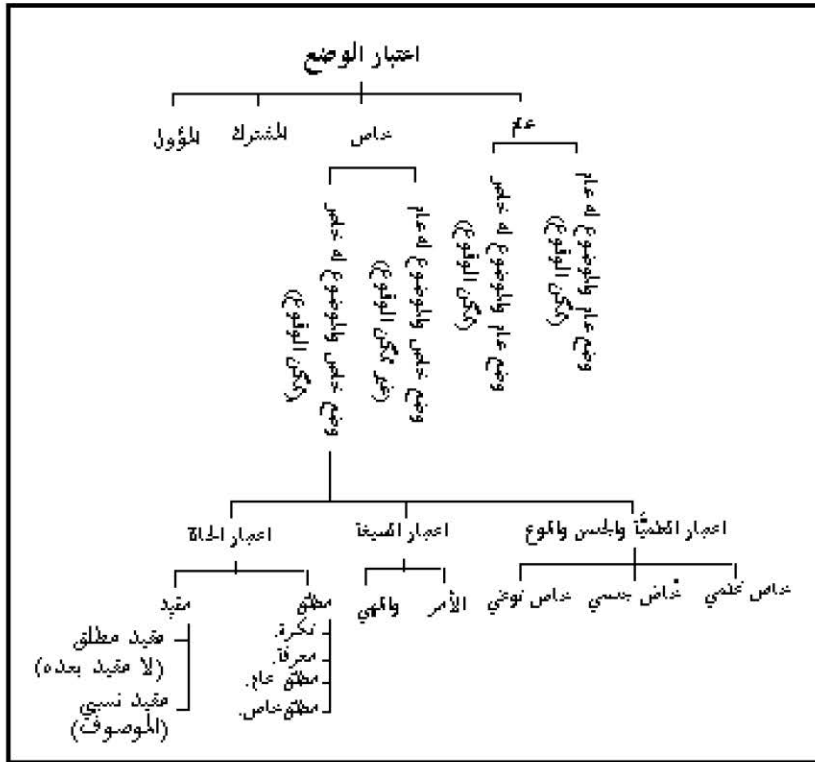 اعتبار الوضع
عام
خاص
المشترك
المؤول
وضع عام والموضوع له عام
(ممكن الوقوع)
وضع عام والموضوع له خاص
(ممكن الوقوع)
وضع خاص والموضوع له عام
(غير ممكن الوقوع)
وضع خاص والموضوع له خاص
(ممكن الوقوع)
اعتبار العلميَّة والجنس والنوع
اعتبار الصيغة
اعتبار الحالة
خاص علمي
خاص جنسي
خاص نوعي
الأمر
والنهي
مطلق
نكرة.
معرفة.
مطلق عام.
مطلق خاص.
مقيد
مقيد مطلق
(لا مقيد بعده)
مقيد نسبي
(الموصوف)